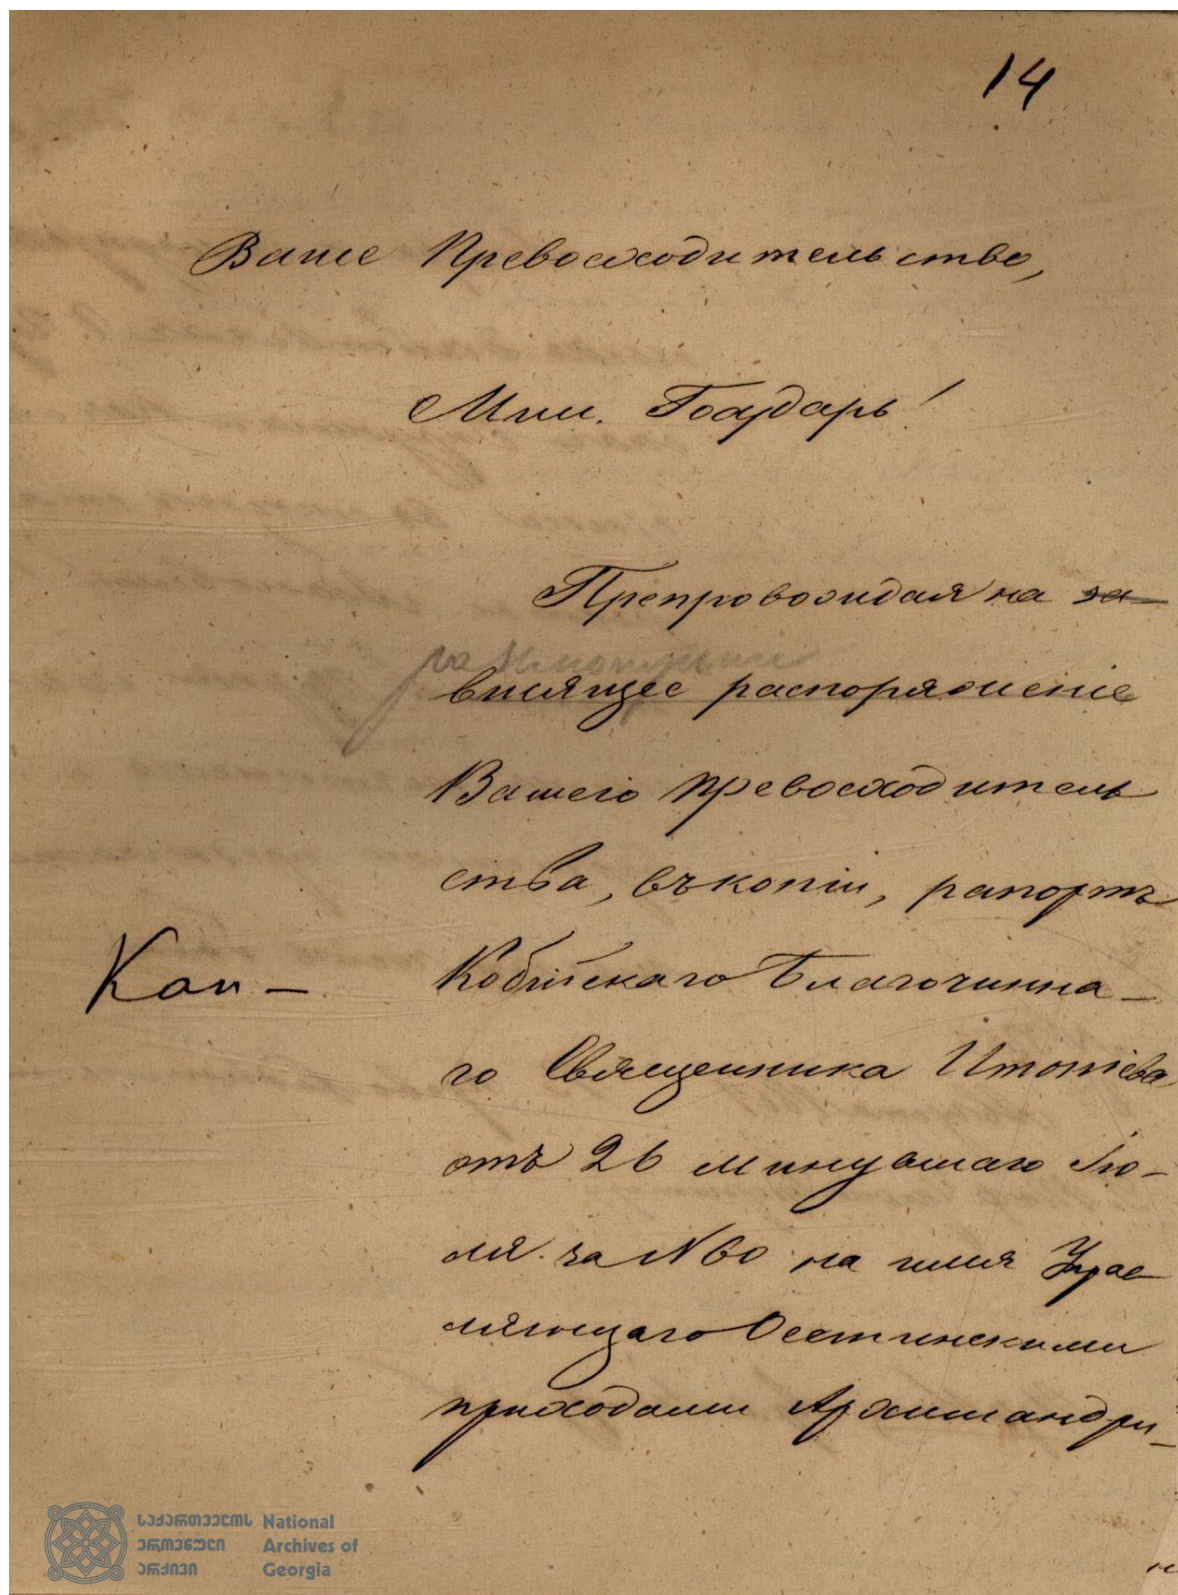 14
Ваше Превосходительство,
Мил. Госдарь!
Препровождая на за-
разсмотрение
висящее распоряженiе
Вашего Превосходитель
ства, въ копiи, рапортъ
Кобiйскаго Благочинна-
Коп-
го Священника
отъ 26 минувшаго Iю-
ля за № 60 на имя Управ
ляющаго Осетинскими
приходами Архимандри-
საქართველოს
ეროვნული
არქივი
National
Archives of
Georgia